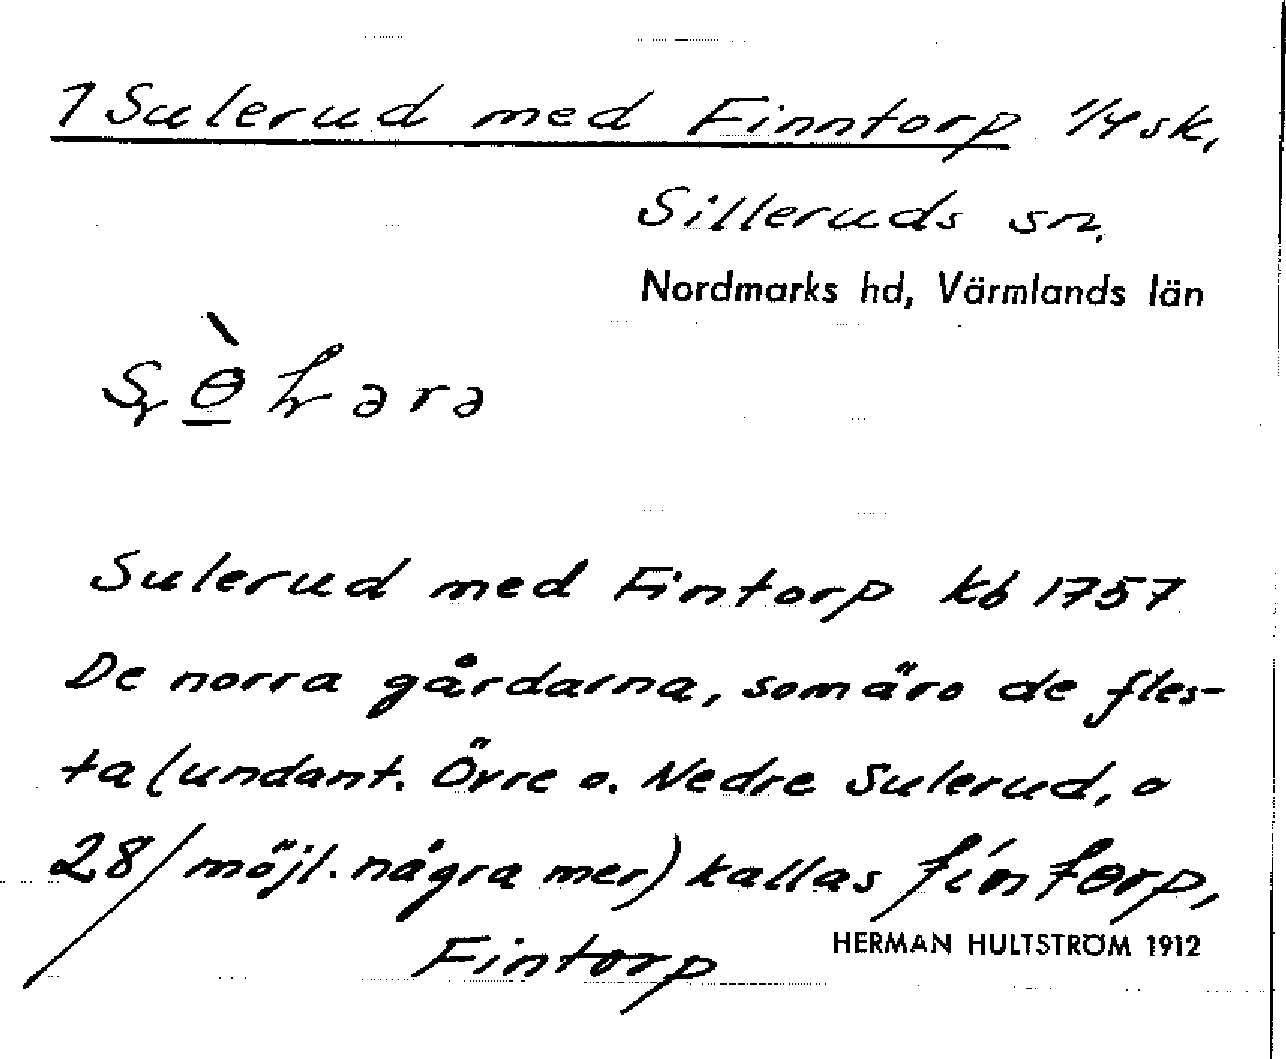 1 Sulerud med Finntorp 1/4 sk,
Silleruds sn.
Nordmarks hd, Värmlands län
Sulerud med Fintorp kb 1757
De norra gårdarna, som äro de fles-
ta (undant. Övre o. Nedre Sulerud, o
28/ möjl. några mer) kallas fíntorp,
HERMAN HULTSTRÖM 1912
Fintorp